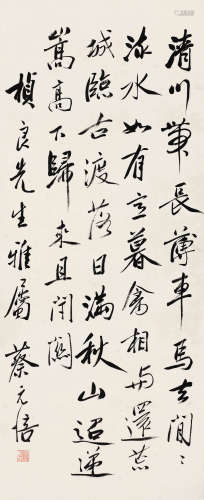 清川帶長薄車馬去閒〻
流水如有意暮禽相与還荒
城臨古渡落日滿秋山迢遞
嵩高下歸来且閉關
楨良先生雅屬 蔡元培